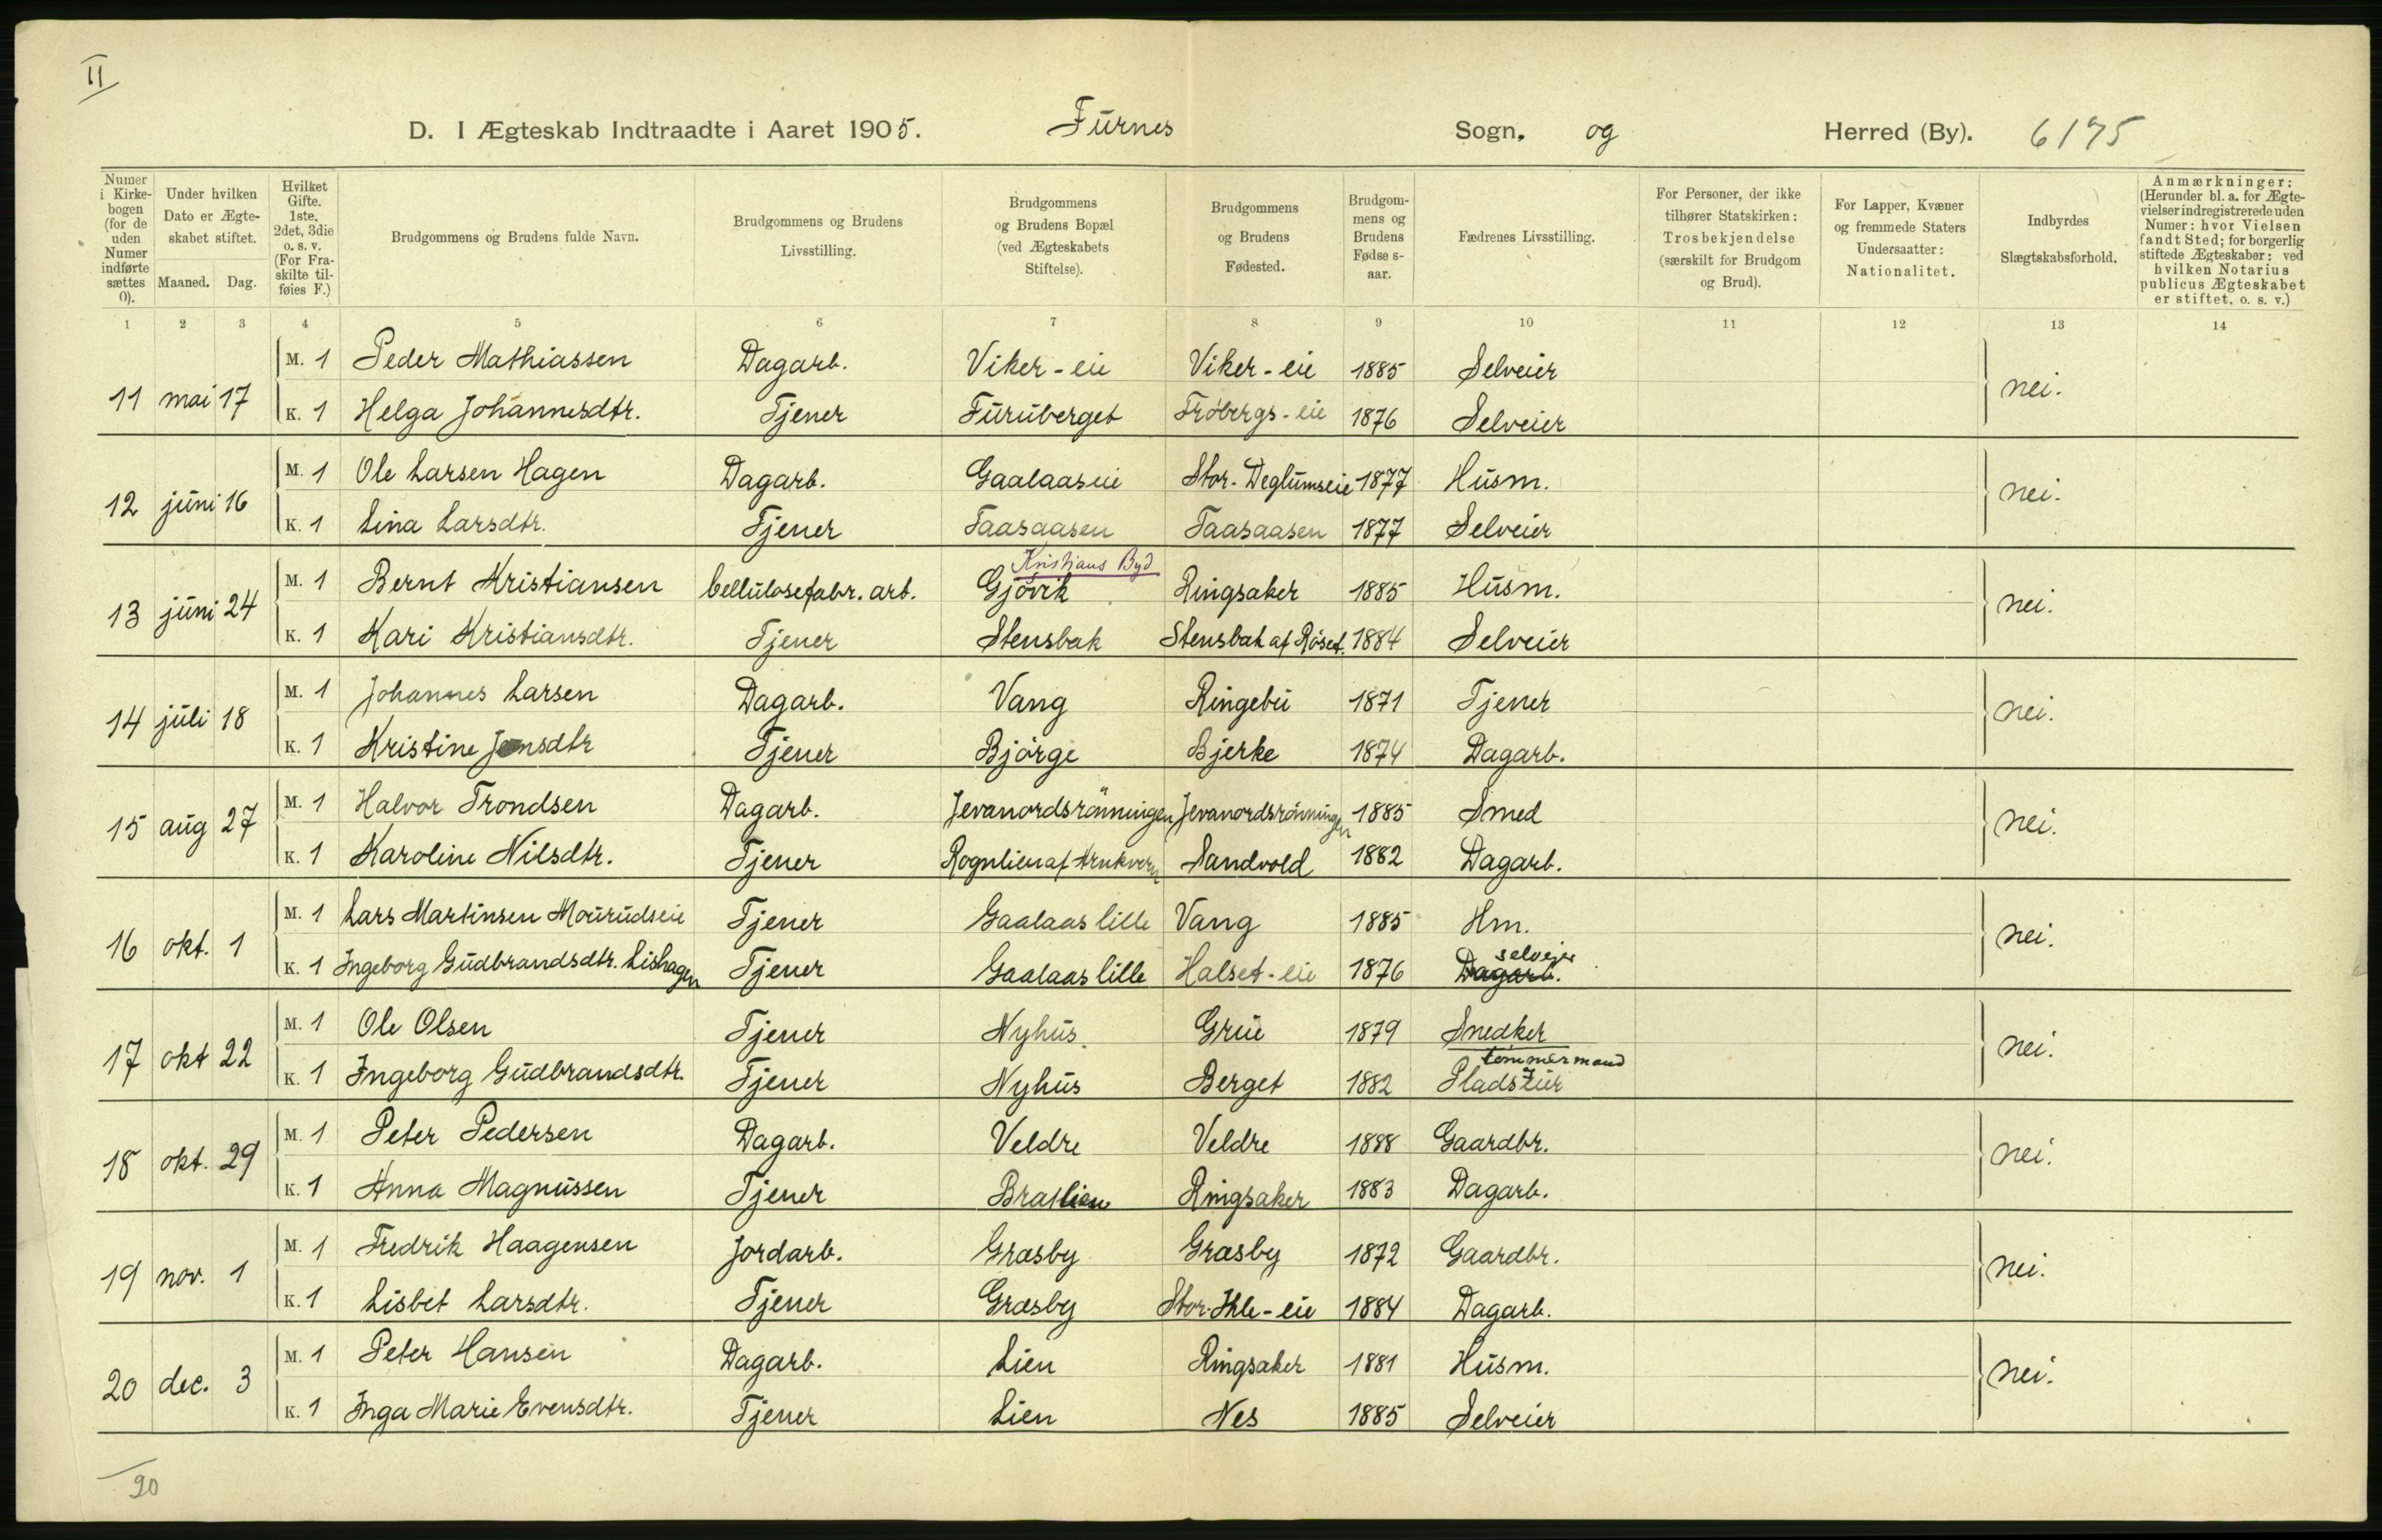 II
D. I Ægteskab Indtraadte i Aaret 1905. Furnes Sogn. og Herred (By). 6175
Numer i Kirkebogen (for de uden Numer indførte sættes 0).
Under hvilken Dato er Ægteskabet stiftet.
Maaned. Dag.
Hvilket Gifte. 1ste, 2det, 3die o. s. v. (For Fraskilte tilføies F.)
Brudgommens og Brudens fulde Navn.
Brudgommens og Brudens Livsstilling.
Brudgommens og Brudens Bopæl (ved Ægteskabets Stiftelse).
Brudgommens og Brudens Fødested.
Brudgommens og Brudens Fødselsaar.
Fædrenes Livsstilling.
For Personer, der ikke tilhører Statskirken: Trosbekjendelse (særskilt for Brudgom og Brud).
For Lapper, Kvæner og fremmede Staters Undersaatter: Nationalitet.
Indbyrdes Slægtskabsforhold.
Anmærkninger: (Herunder bl. a. for Ægtevielser indregistrerede uden Numer: hvor Vielsen fandt Sted; for borgerlig stiftede Ægteskaber: ved hvilken Notarius publicus Ægteskabet er stiftet, o. s. v.)
1 2 3 4 5 6 7 8 9 10 11 12 13 14
M. 1 Peder Mathiassen Dagarb. Viker-eie Viker-eie 1885 Selveier
11 mai 17 nei.
K. 1 Helga Johannesdtr. Tjener Furuberget Frobergs-eie 1876 Selveier
M. 1 Ole Larsen Hagen Dagarb. Gaalaaseie Stor-Deglumseie 1877 Husm.
12 juni 16 nei.
K. 1 Lina Larsdtr. Tjener Taasaasen Taasaasen 1877 Selveier
Kristians Byd
M. 1 Bernt Kristiansen Cellulosefabr. arb. Gjövik Ringsaker 1885 Husm.
13 juni 24 nei.
K. 1 Kari Kristiansdtr. Tjener Stensbak Stensbak af Röset. 1884 Selveier
M. 1 Johannes Larsen Dagarb. Vang Ringebu 1871 Tjener
14 juli 18 nei.
K. 1 Kristine Jensdtr Tjener Björge Bjerke 1874 Dagarb.
M. 1 Halvor Trondsen Dagarb. Jevanordsrönningen Jevanordsrönningen 1885 Smed
15 aug 27 nei.
K. 1 Karoline Nilsdtr. Tjener Rognlien af Arnkvern Sandvold 1882 Dagarb.
M. 1 Lars Martinsen Mourudseie Tjener Gaalaas lille Vang 1885 Hm.
16 okt. 1 nei.
selveier
K. 1 Ingeborg Gudbrandsdtr. Lishagen Tjener Gaalaas lille Halset-eie 1876 Dagarb.
M. 1 Ole Olsen Tjener Nyhus. Grue 1879 Snedker
17 okt 22 nei.
tømmermand
K. 1 Ingeborg Gudbrandsdtr. Tjener Nyhus Berget 1882
M. 1 Peter Pedersen Dagarb. Veldre Veldre 1888 Gaardbr.
18 okt. 29 nei.
K. 1 Anna Magnussen Tjener Bratlien Ringsaker 1883 Dagarb.
M. 1 Fredrik Haagensen Jordarb. Græsby Græsby 1872 Gaardbr.
19 nov. 1 nei.
K. 1 Lisbet Larsdtr. Tjener Græsby Stor-Ihle-eie 1884 Dagarb.
M. 1 Peter Hansen Dagarb. Lien Ringsaker 1881 Husm.
20 dec. 3 nei.
K. 1 Inga Marie Evensdtr. Tjener Lien Nes 1885 Selveier
20